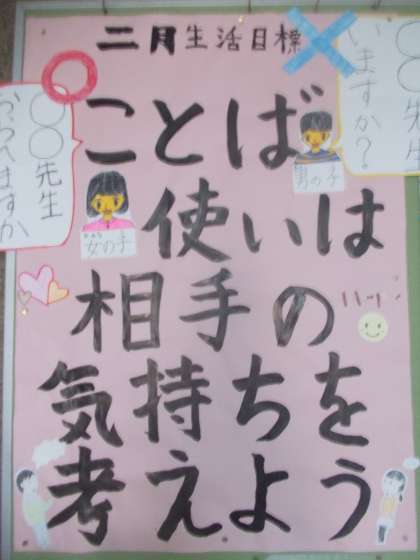 二月生活目標
ことば
使いは
相手の
気持ちを
考えよう
〇〇先生
おられますか
〇〇先生
いますか?
女の子
男の子